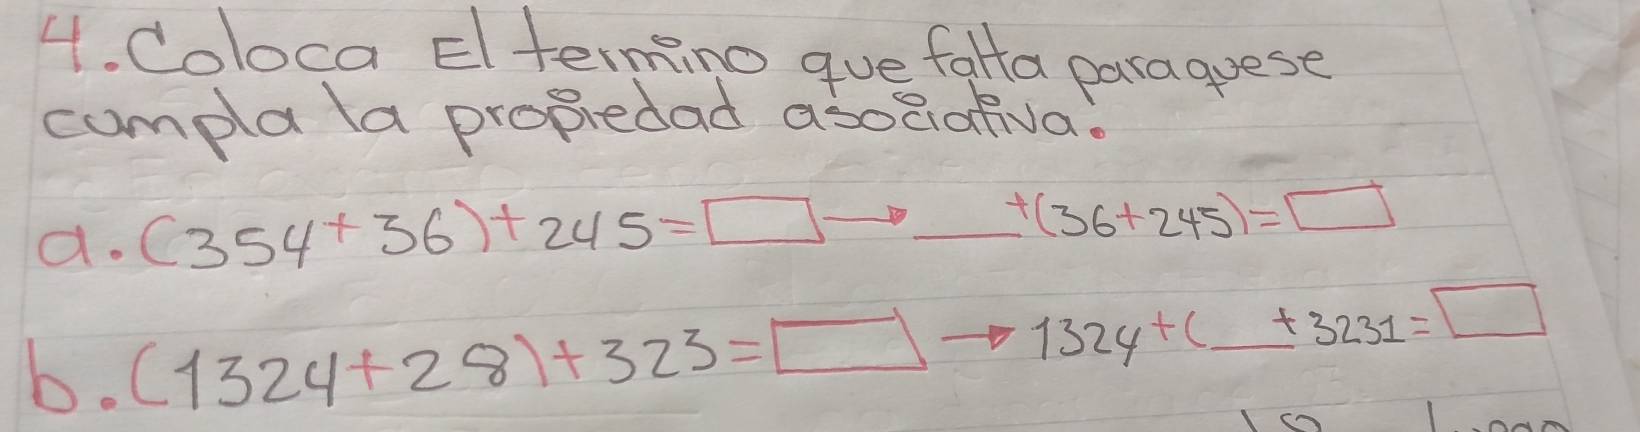 4. Coloca El termino que falta paraquese
cumpla la propiedad asociativa.
a. (354+36)+245=□→___+(36+245)=□
b. (1324+28)+323=□→1324+(___+3231=□